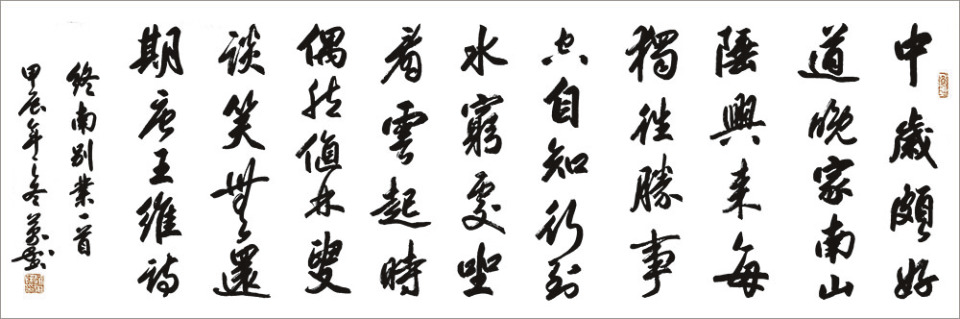 中歲頗好
道晚家南山
陲興來每
獨往勝事
空自知行到
水窮處坐
看雲起時
偶然值林叟
談笑無還
期唐王維詩
終南别業一首
甲辰年冬